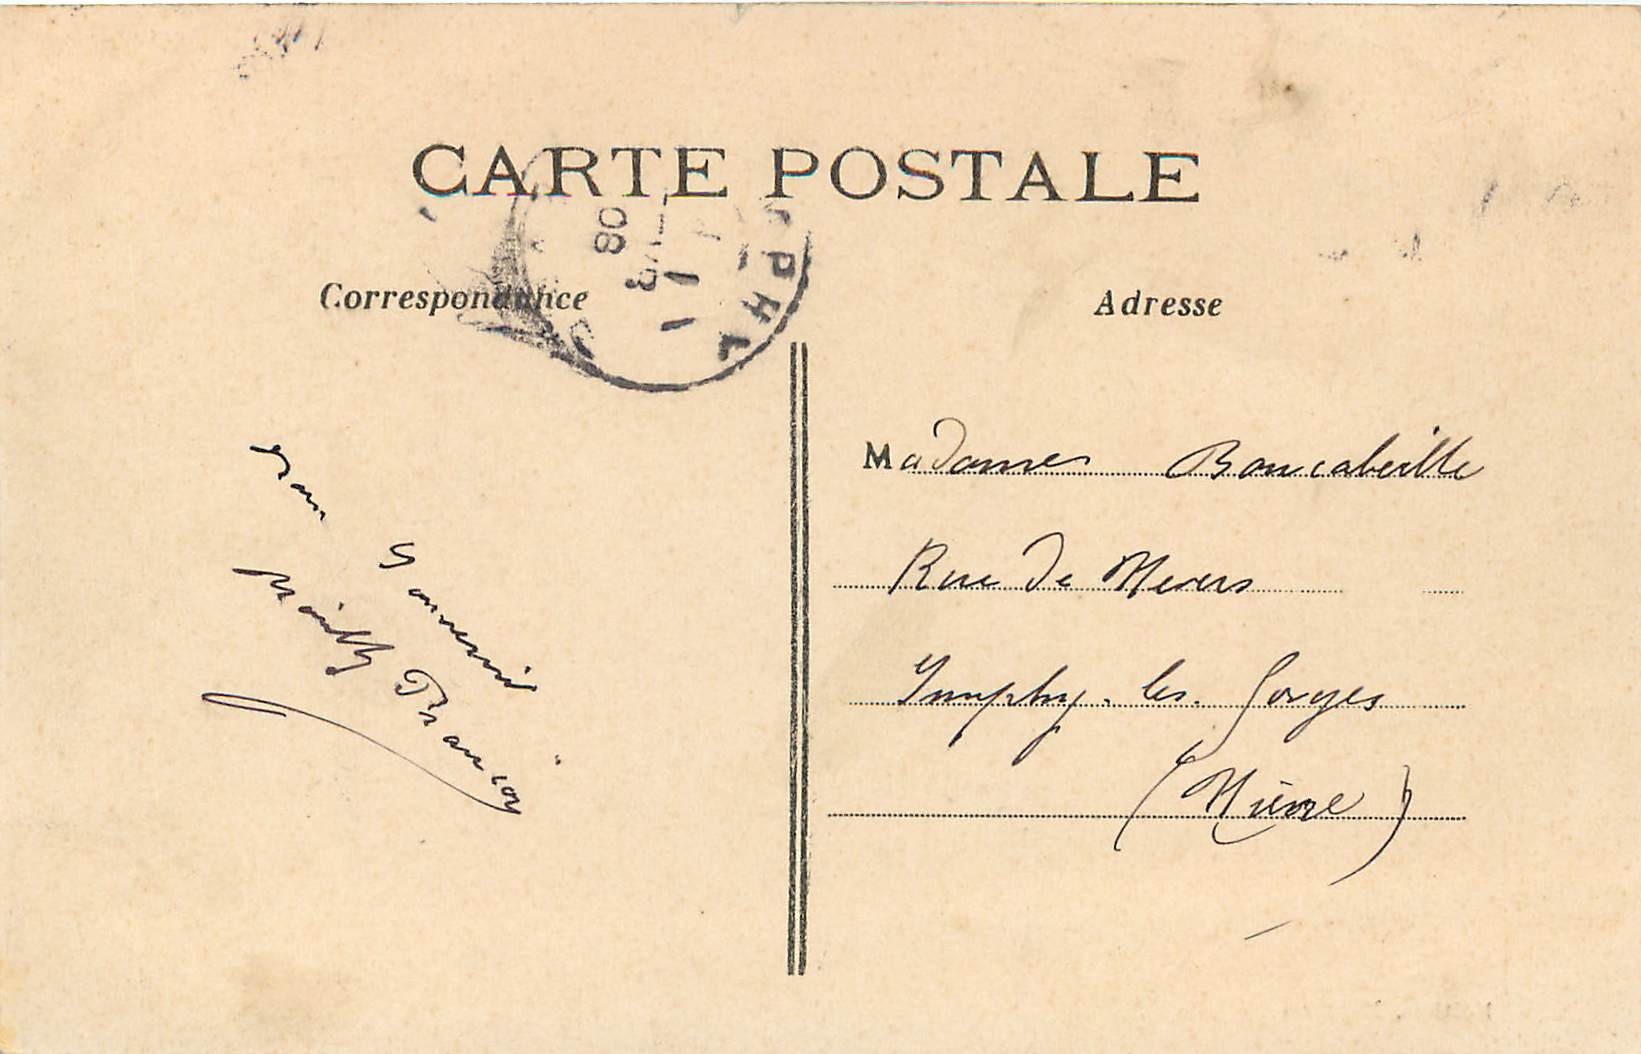 CARTE POSTALE
Correspondance
Adresse
PHY
08
Bon Souvenir
Madame Boucabeille
Rue de Nevers
Imphy. les. Forges
(Nièvre)